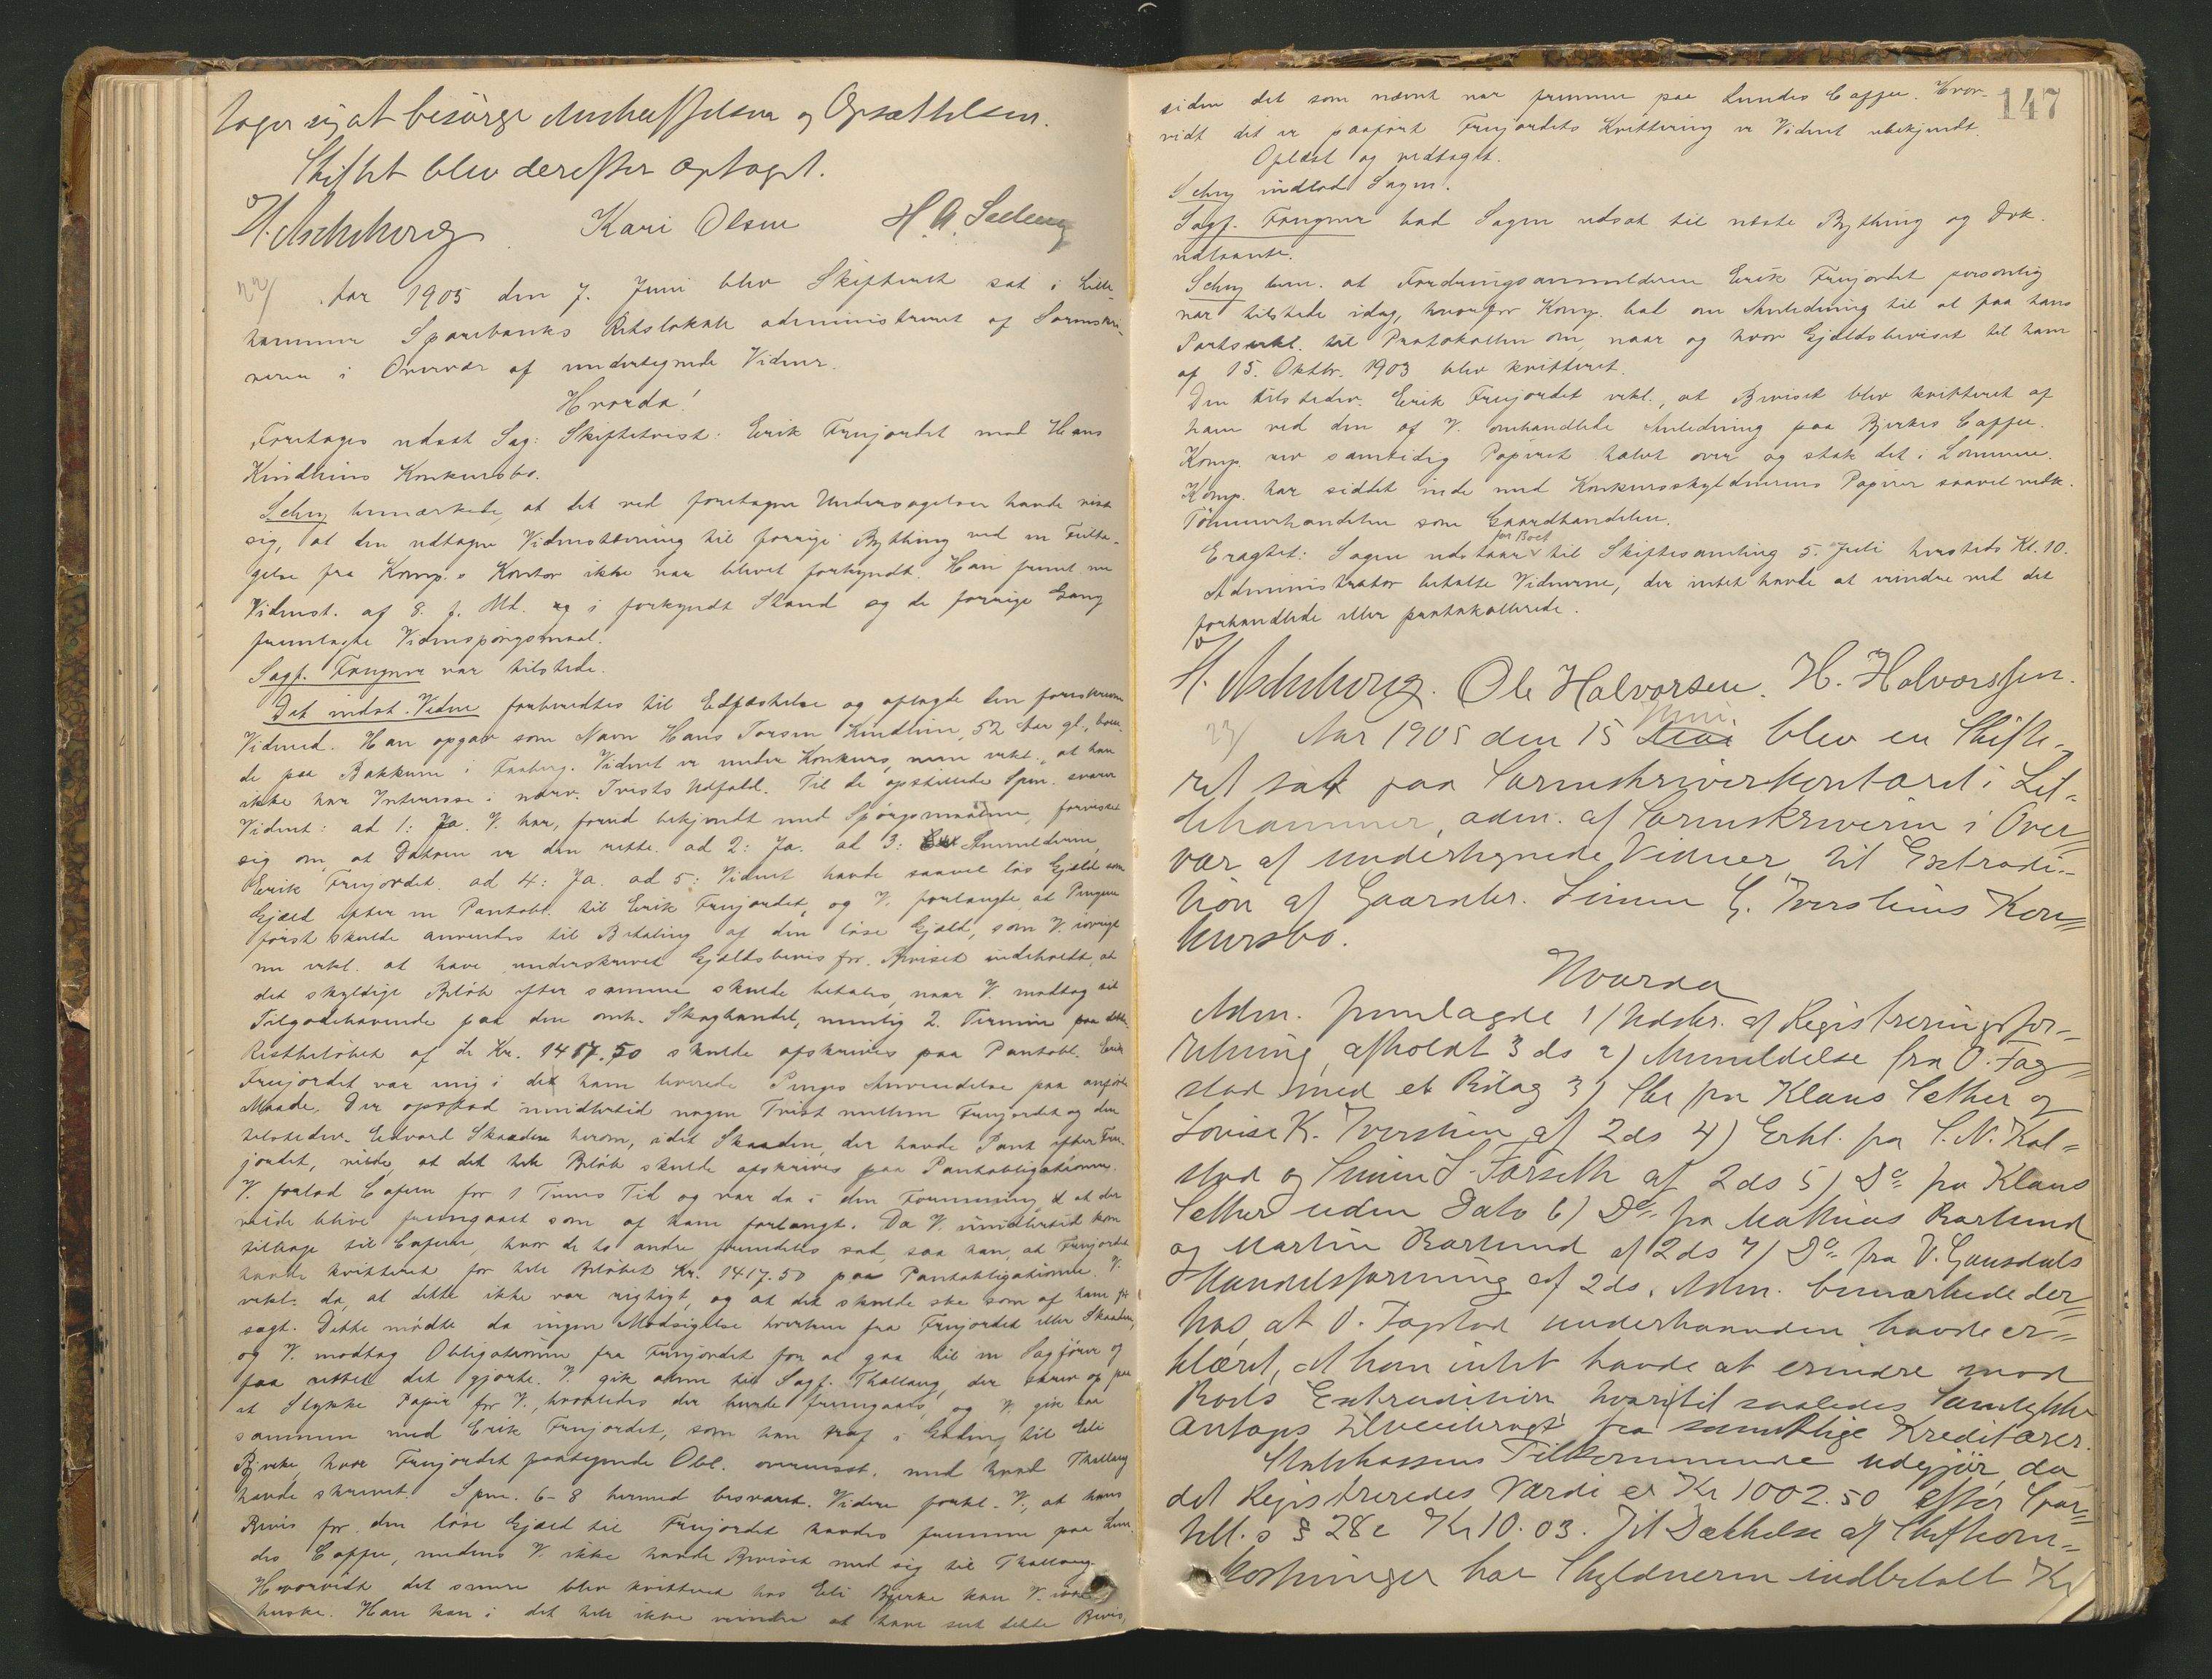 tager sig at besörge Anskaffelsen og Opsættelsen.
Skiftet blev derefter optaget.
H. Aschehoug Kari Olsen H. A. Selberg
22/ Aar 1905 den 7. Juni blev Skifteret sat i Lille-
hammer Sparebanks Retslokale administreret af Sorenskri-
veren i Overvær af undertegnede Vidner.
Hvorda!
Foretages udsat Sag: Skiftetvist: Erik Frujordet mod Hans
Kindliens Konkursbo.
Schey bemærkede, at det ved foretagne Undersøgelser havde vist
sig, at den udtagne Vidnestævning til forrige Bything ved en Feilta-
gelse fra Komp.s Kontor ikke var blevet forkyndt. Han freml. nu
Vidnest. af 8. f. Md. i forkyndt Stand og de forrige Gang
fremlagte Vidnespörgsmaal.
Sagf. Frugner var tilstede.
Det indst. Vidne forberedtes til Edfæstelse og aflagde den foreskrevne
Vidneed. Han opgav som Navn Hans Torsen Kindlien, 52 Aar gl., boen-
de paa Bakkene i Faaberg. Vidnet er under Konkurs, men erkl., at han
ikke har Interesse i nærv. Tvists Udfald. Til de opstillede Spm. svarer
Vidnet: ad 1: Ja. V. har, forud bekjendt med Spörgsmaalene, forvisset
sig om, at Datoen er den rette. ad 2: Ja. ad 3: Anmelderen,
Erik Frujordet. ad 4: Ja. ad 5: Vidnet havde saavel lös Gjæld som
Gjæld efter en Pantobl. til Erik Frujordet, og V. forlangte, at Pengene
først skulde anvendes til Betaling af den löse Gjæld, som V. iövrigt
nu erkl. at have underskrevet Gjældsbevis for. Beviset indeholdt, at
det skyldige Belöb efter samme skulde betales, naar V. modtog sit
Tilgodehavende paa den omh. Skoghandel, nemlig 2. Termin
Restbelöbet af de Kr. 1417.50 skulde afskrives paa Pantobl. Erik
Frujordet var enig i det ham leverede Penges Anvendelse paa anförte
Maade. Der opstod imidlertid nogen Tvist mellem Frujordet og den
tilstedev. Edvard Skaaden herom, idet Skaaden, der havde Pant efter Fru-
jordet, vilde, at det hele Belöb skulde afskrives paa Pantobligationen.
V. forlod Cafeen for 1 Times Tid og var da i den Formening, at det
vilde blive fremgaaet som af ham forlangt. Da V. imidlertid kom
tilbage til Cafeen, hvor de to andre fremdeles sad, saa han, at Frujordet
havde kvitteret for hele Belöbet Kr. 1417.50 paa Pantobligationen. V.
erkl. da, at dette ikke var rigtigt, og at det skulde ske som af ham för
sagt. Dette mödte da ingen Modsigelse hverken fra Frujordet eller Skaaden,
og V. modtog Obligationen fra Frujordet for at gaa til en Sagförer og
faa rettet det gjorte. V. gik alene til Sagf. Thallaug, der skrev op paa
et Stykke Papir for V., hvorledes der burde fremgaaes, og V. gik saa
sammen med Erik Frujordet, som han traf i Gaden, til Eli
Bjerke, hvor Frujordet paategnede Obl. overensst. med hvad Thallaug
havde skrevet. Spm. 6-8 hermed besvaret. Videre forkl. V., at hans
Bevis for den löse Gjæld til Frujordet havdes fremme paa Lun-
des Caffee, medens V. ikke havde Beviset med sig til Thallaug.
Hvorvidt det senere blev kvitteret hos Eli Bjerke kan V. ikke
huske. Han kan i det hele ikke erindre at have seet dette Bevis,
147
siden det som nævnt var fremme paa Lundes Caffee. Hvor-
vidt det er paaført Frujordets Kvittering er Vidnet ubekjendt.
Oplæst og vedtaget.
Schey indlod Sagen.
Sagf. Frugner bad Sagen udsat til næste Bything og Dok.
udlaante.
Schey bem. at Fordringsanmelderen Erik Frujordet personlig
var tilstede idag, hvorfor Komp. bad om Anledning til at faa hans
Partserkl. til Protokollen om, naar og hvor Gjældsbeviset til ham
af 15. Oktbr. 1903 blev kvitteret.
Den tilstedev. Erik Frujordet erkl., at Beviset blev kvitteret af
ham ved den af V. omhandlede Anledning paa Bjerkes Caffee.
Komp. rev samtidig Papiret halvt over og stak det i Lommen.
Komp. har siddet inde med Konkursskyldnerens Papirer saavel vedk.
Tömmerhandelen som Gaardhandelen.
Eragtet: Sagen udstaar for Boet til Skiftesamling 5. Juli hersteds Kl. 10.
Administrator betalte Vidnerne, der intet havde at erindre ved det
forhandlede eller protokollerede.
H. Aschehoug. Ole Halvorsen. H. Halvorssen.
23/ Aar 1905 den 15 Juni blev en Skifte-
ret sat paa Sorenskriverkontoret i Lil-
lehammer, adm. af Sorenskriveren i Over-
vær af undertegnede Vidner til Extradi-
tion af Gaardbr. Simen G. Iversliens Kon-
kursbo.
Hvorda
Adm. fremlagde 1/ Udskr. af Registreringsfor-
retning, afholdt 3 ds 2) Anmeldelse fra O. Fag-
stad med et Bilag 3) Skr fra Klaus Sether og
Lovise K. Iverslien af 2 ds 4) Erkl. fra S. N. Kol-
stad og Simen S. Forseth af 2 ds 5) Do fra Klaus
Sether uden Dato 6) Do fra Mathias Barlund
og Martin Barlund af 2 ds 7/ Do fra V. Gausdals
Handelsforening af 2 ds. Adm. bemærkede der-
hos, at O. Fagstad underhaanden havde er-
klæret, at han intet havde at erindre mod
Boets Extradition hvortil saaledes Samtykke
antages tilveiebragt fra samtlige Kreditorer.
Statskassens Tilkommende udgjör, da
det Registreredes Værdi er Kr 1002.50 efter Spor-
tell.s § 28c Kr 10.03. Til Dækkelse af Skifteom-
kostninger har Skyldneren indbetalt Kr